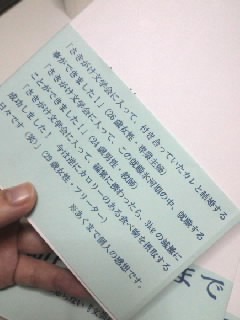 「さきがけ文学会に入って、付き合っていたカレと結婚する
事ができました！」(26歳女性・専業主婦)
「さきがけ文学会に入って、この就職氷河期の中、就職する
ことができました！」(24歳男性・教師)
「さきがけ文学会に入って、編集に携わったら、3kgの減量に
成功しました！　今は逆にカロリーのある食べ物を摂取する
日々です（笑）」(29歳女性・フリーター)
※あくまで個人の感想です。
まで